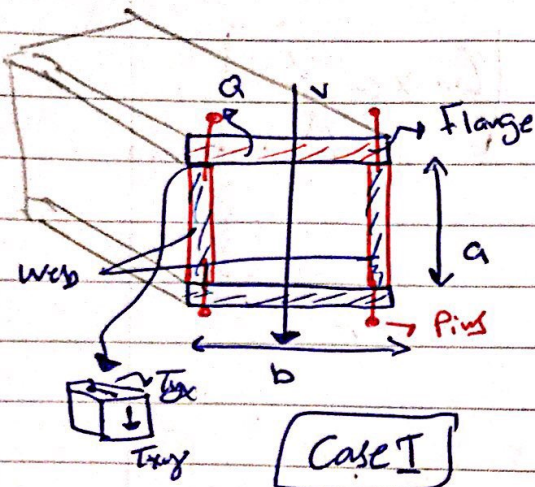 Q
V
Flange
Web
a
Pins
b
τyx
τxy
Case I